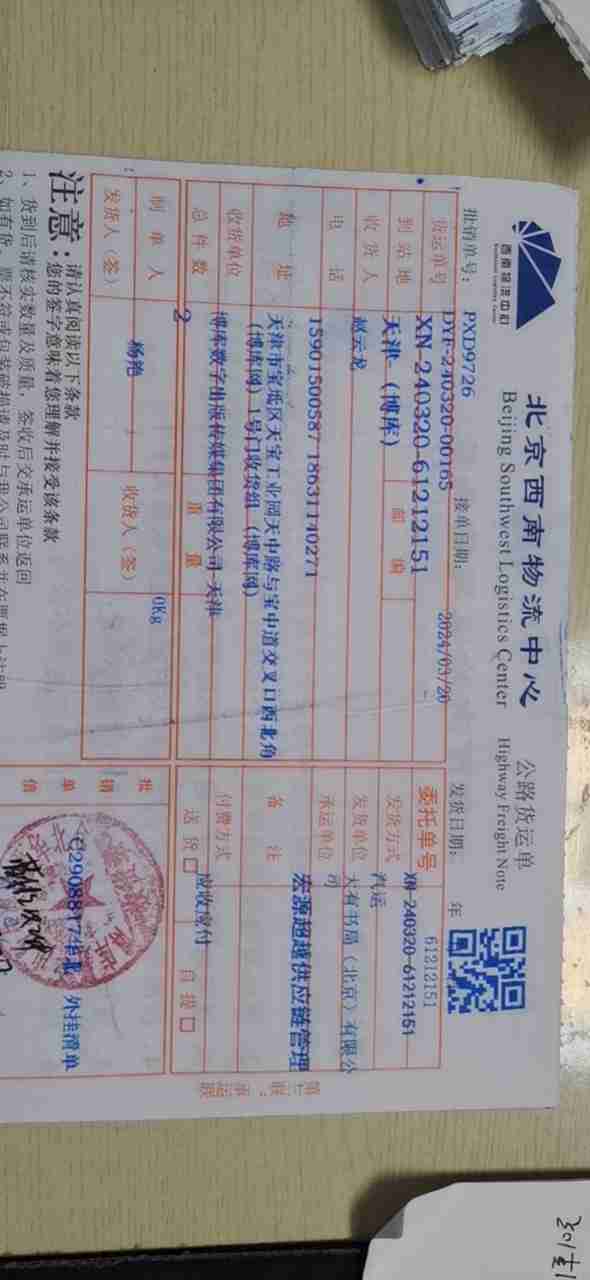 西南物流中心
北京西南物流中心
Beijing Southwest Logistics Center
公路货运单
Highway Freight Note
批销单号： PXD9726
接单日期： 2024/03/20
发货日期： 年
61212151
货运单号 DYF-240320-00165
XN-240320-61212151
委托单号 XN-240320-61212151
到站地 天津（博库） 邮编
发货方式 汽运
收货人 赵云龙
发货单位 大有书局（北京）有限公司
电话 15901500587 18631140271
承运单位 宏源超越供应链管理
地址 天津市宝坻区天宝工业园天中路与宝中道交叉口西北角
（博库网）1号门收货组（博库网）
备注
收货单位 博库数字出版传媒集团有限公司-天津
付费方式 应收应付
总件数 2 重量 0Kg
送货 自提
制单人 杨艳
发货人（签） 收货人（签）
批销单信 外挂清单
第七联：承运联
注意：请认真阅读以下条款
您的签字意味着您理解并接受该条款
1、货到后请核实数量及质量，签收后交承运单位返回
2、如有货